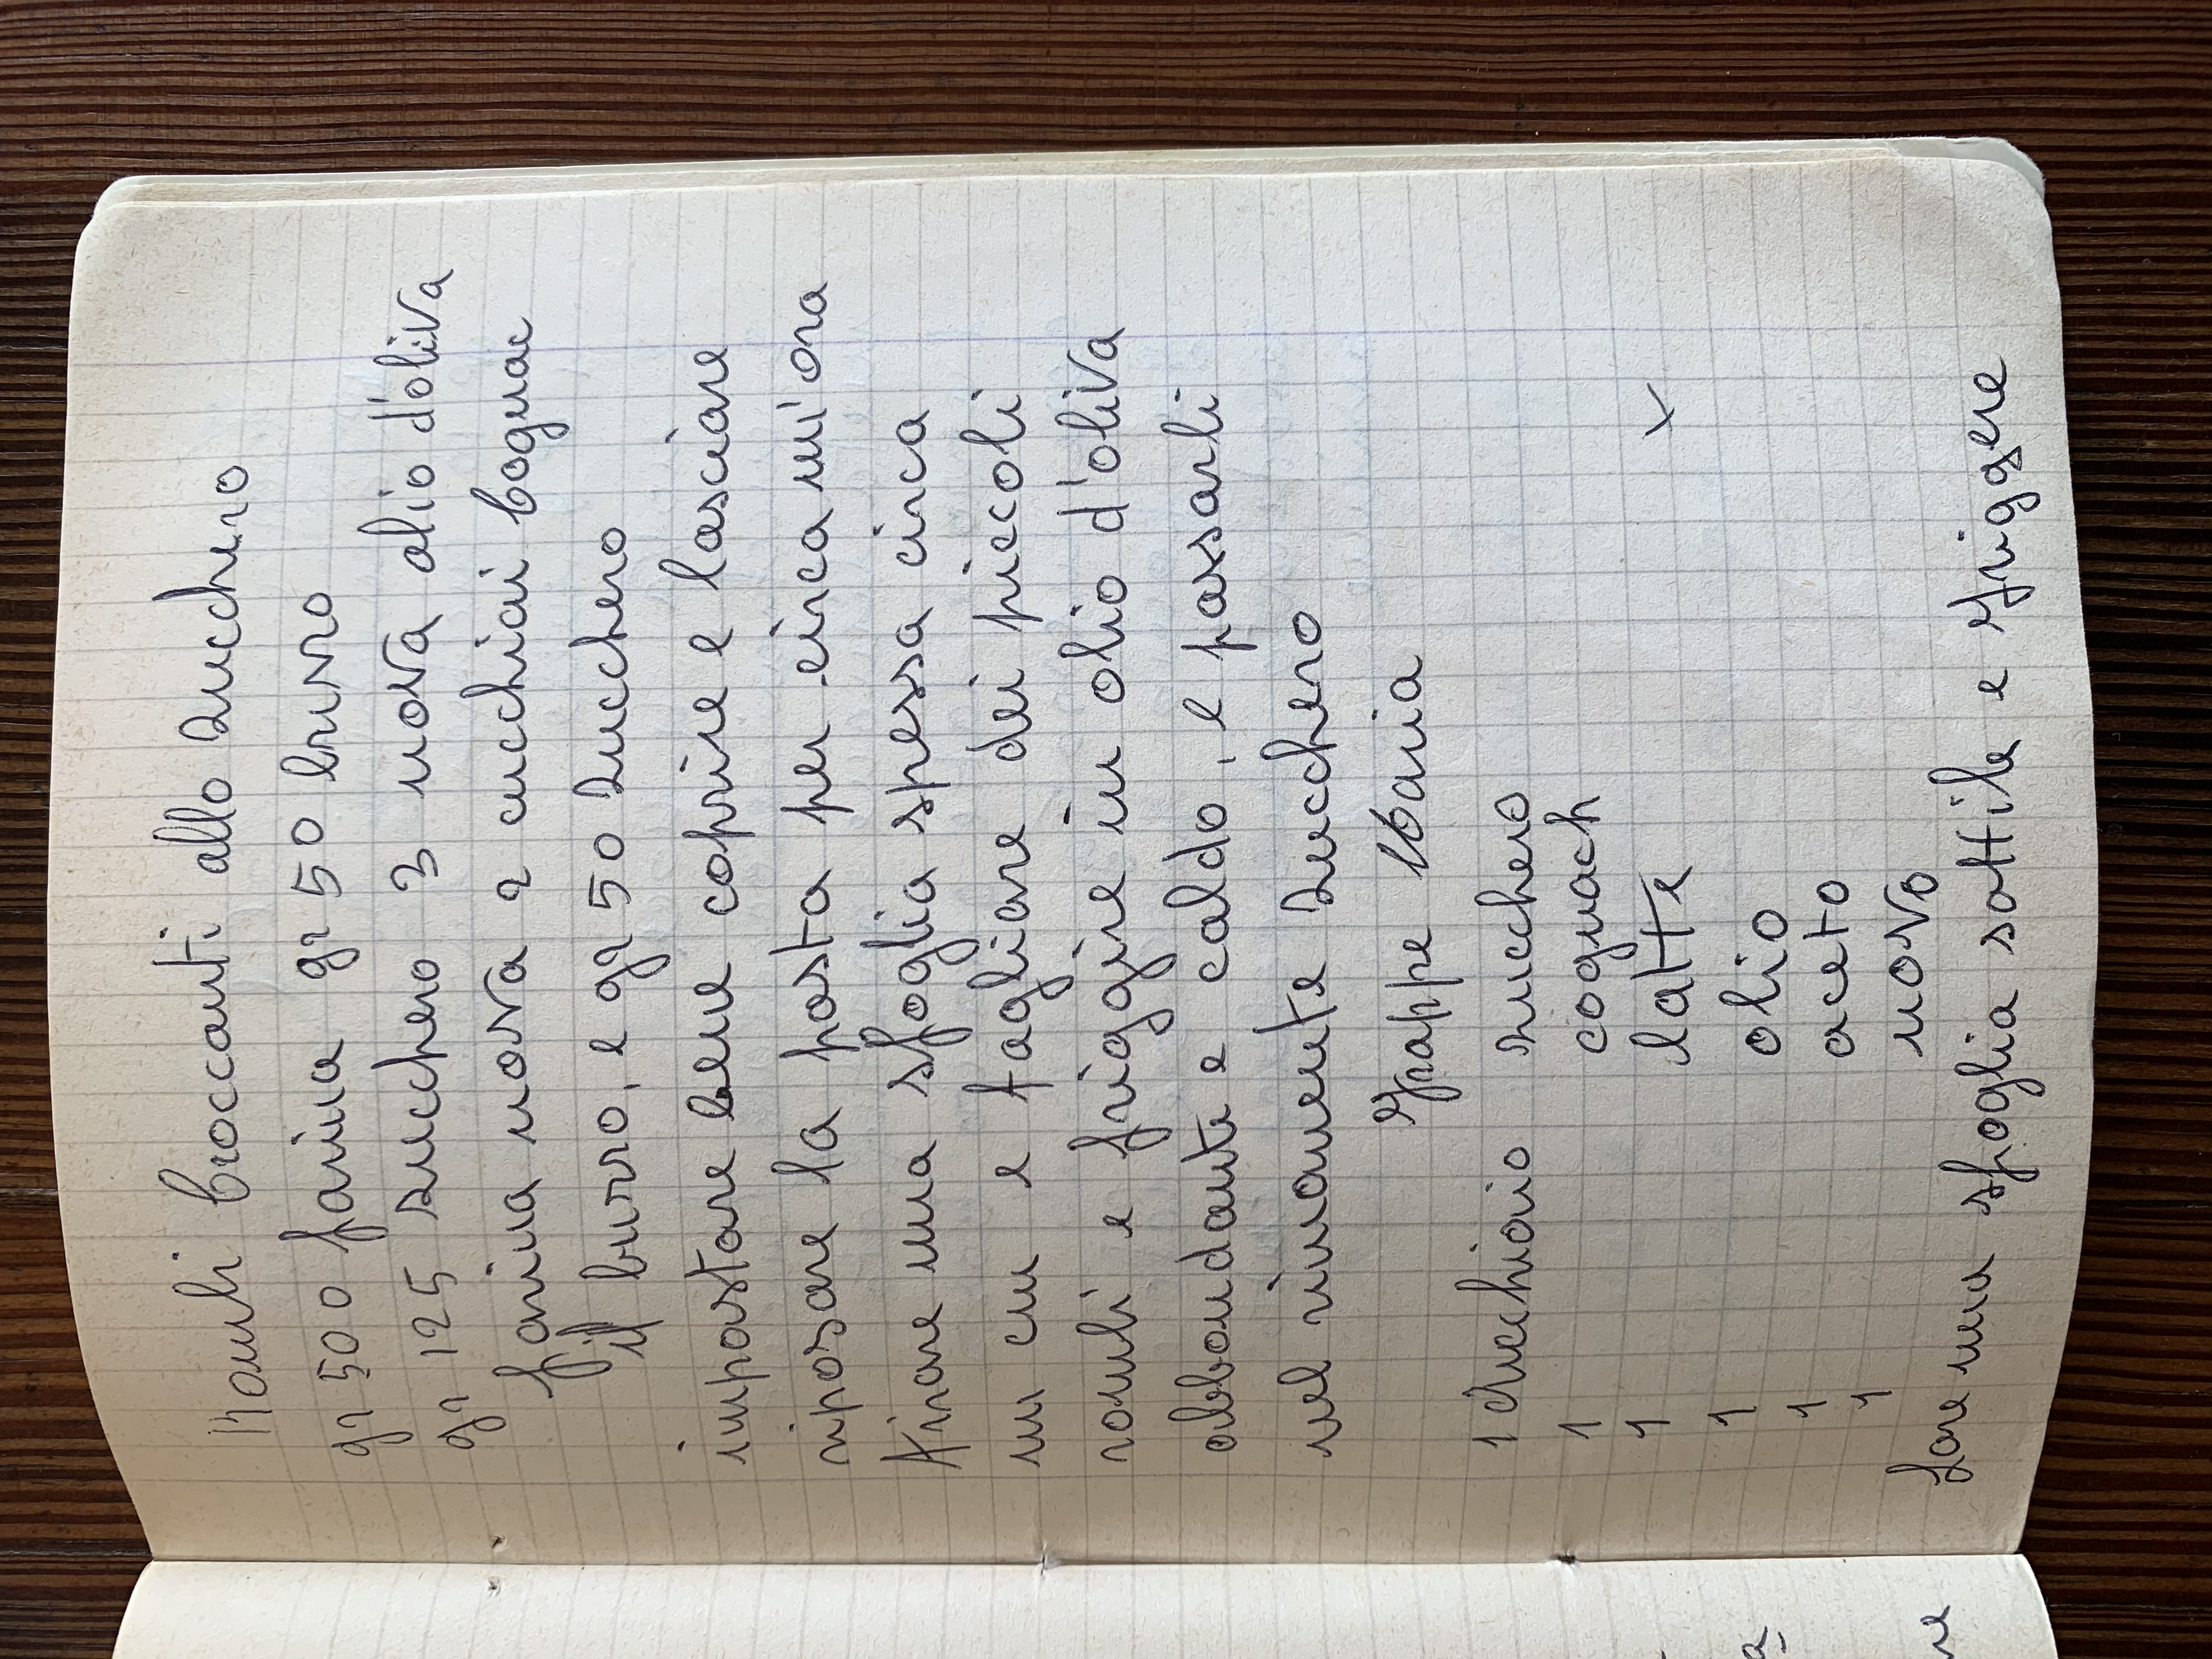 Rombi Croccanti allo Zucchero
gr 500 farina gr 50 burro
gr 125 zucchero 3 uova olio d'oliva
farina uova 2 cucchiai Cognac
il burro, e gr 50 Zucchero
impastare bene coprire e lasciare
riposare la pasta per circa un'ora
tirare una sfoglia spessa circa
un cm e tagliare dei piccoli
rombi e friggire in olio d'oliva
abbondante e caldo, e passarli
nel rimanente zucchero
Frappe Maria
1 Cucchiaio zucchero
1 cognach
1 latte
1 olio
1 aceto
1 uovo
Fare una sfoglia sottile e friggere